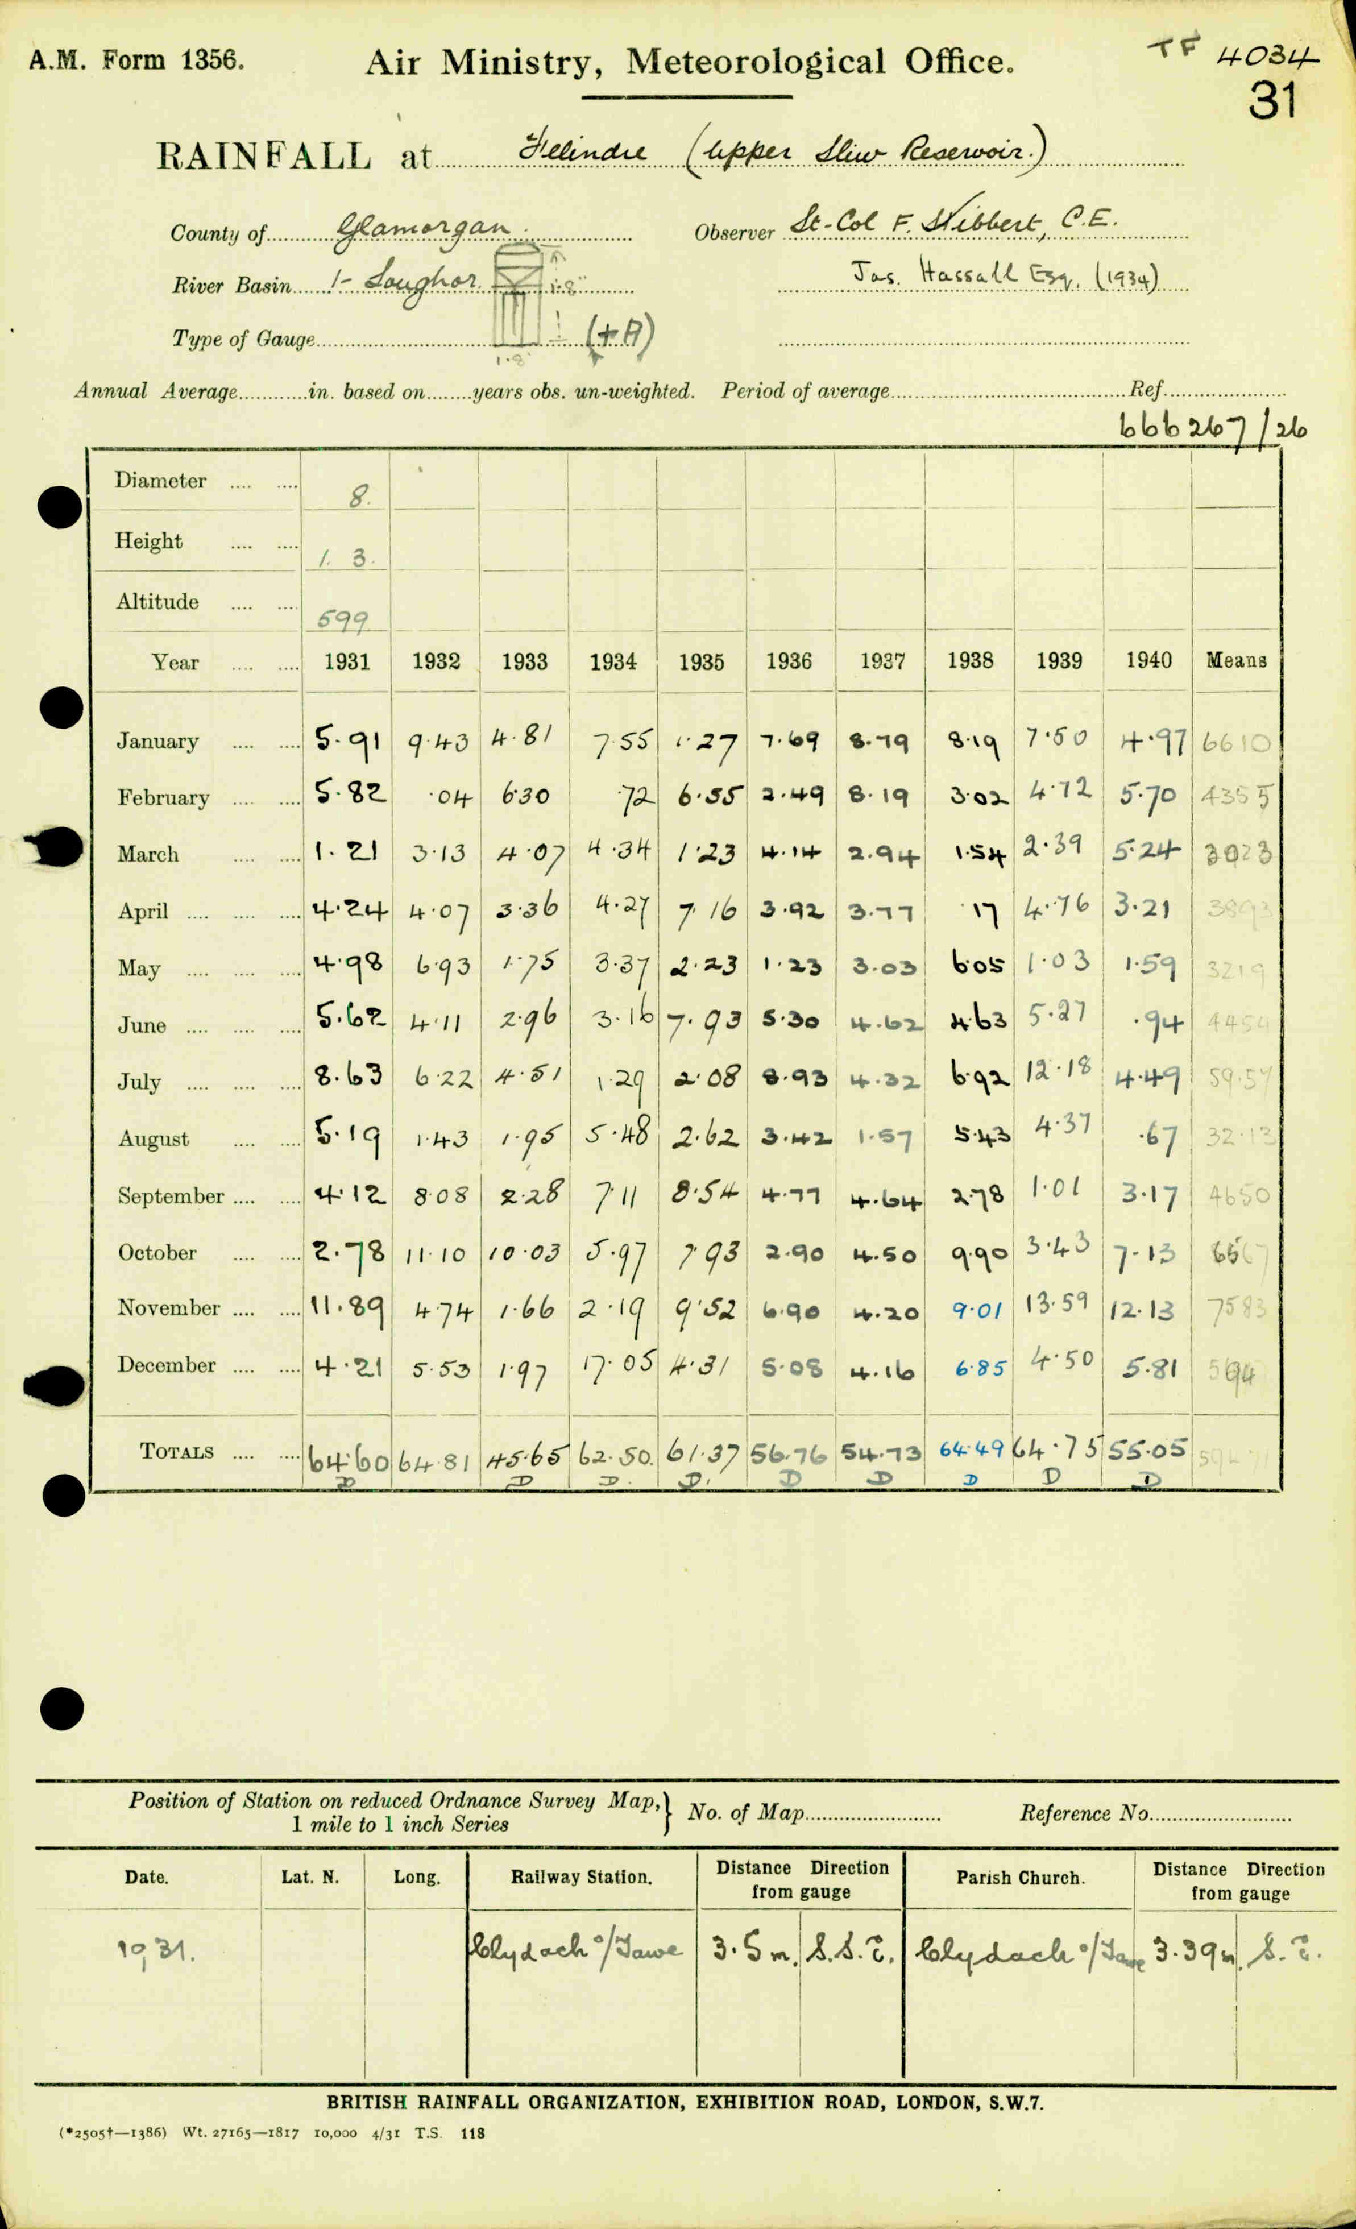 A.M. Form 1356.
Air Ministry, Meteorological Office.
TF 4034
31
RAINFALL at Felindre (Upper Lliw Reservoir.)
County of Glamorgan. Observer Lt-Col F. Stibbert, C.E.
River Basin 1- Loughor. 1·8" Jas. Hassall Esq. (1934)
Type of Gauge (+A)
1·8"
Annual Average in. based on years obs. un-weighted. Period of average Ref.
666267/26
Diameter 8.
Height 1. 3.
Altitude 599
Year 1931 1932 1933 1934 1935 1936 1937 1938 1939 1940 Means
January 5.91 9.43 4.81 7.55 1.27 7.69 8.79 8.19 7.50 4.97 6610
February 5.82 .04 6.30 .72 6.55 2.49 8.19 3.02 4.72 5.70 4355
March 1.21 3.13 4.07 4.34 1.23 4.14 2.94 1.54 2.39 5.24 3023
April 4.24 4.07 3.36 4.27 7.16 3.92 3.77 .17 4.76 3.21 3893
May 4.98 6.93 1.75 3.37 2.23 1.23 3.03 6.05 1.03 1.59 3219
June 5.62 4.11 2.96 3.16 7.93 5.30 4.62 4.63 5.27 .94 4454
July 8.63 6.22 4.51 1.29 2.08 8.93 4.32 6.92 12.18 4.49 59.57
August 5.19 1.43 1.95 5.48 2.62 3.42 1.57 5.43 4.37 .67 32.13
September 4.12 8.08 2.28 7.11 8.54 4.77 4.64 2.78 1.01 3.17 4650
October 2.78 11.10 10.03 5.97 7.93 2.90 4.50 9.90 3.43 7.13 6567
November 11.89 4.74 1.66 2.19 9.52 6.90 4.20 9.01 13.59 12.13 7583
December 4.21 5.53 1.97 17.05 4.31 5.08 4.16 6.85 4.50 5.81
TOTALS 64.60 64.81 45.65 62.50. 61.37 56.76 54.73 64.49 64.75 55.05 59471
D D D. D. D D D D D
Position of Station on reduced Ordnance Survey Map,} No. of Map Reference No.
1 mile to 1 inch Series
Date. Lat. N. Long. Railway Station. Distance Direction from gauge Parish Church. Distance Direction from gauge
1931. Clydach o/Tawe 3.5 m. S.S.E. Clydach o/Tawe 3.39m. S.E.
BRITISH RAINFALL ORGANIZATION, EXHIBITION ROAD, LONDON, S.W.7.
(*2505†—1386) Wt. 27165—1817 10,000 4/31 T.S. 118